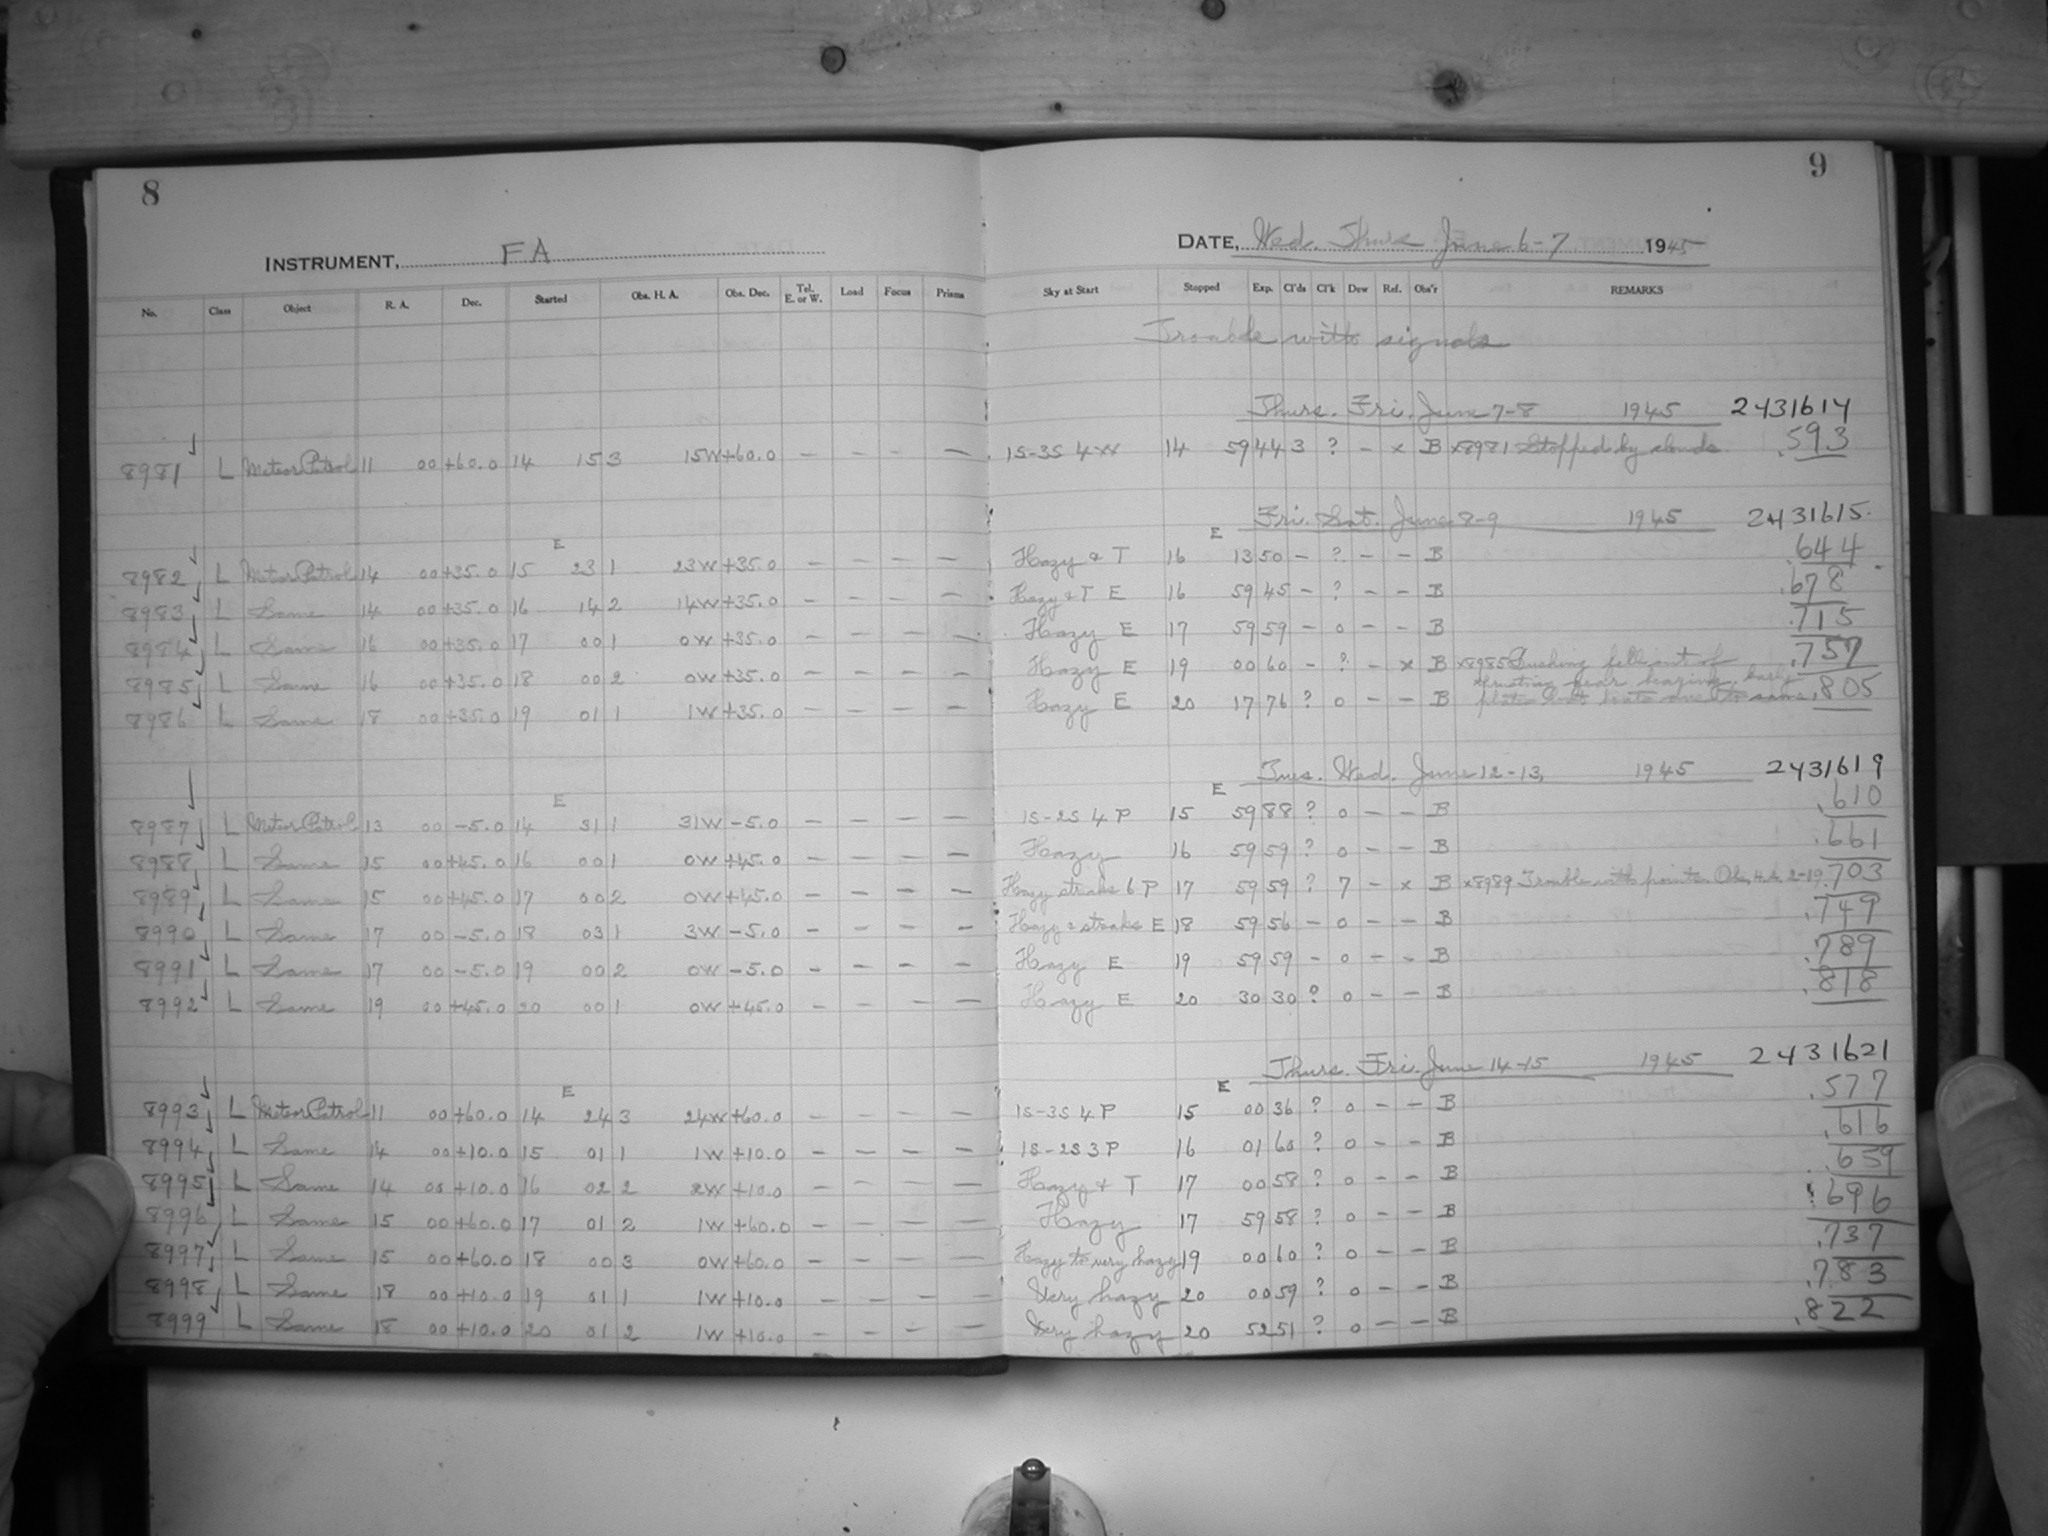 8
INSTRUMENT, FA
No. Class Object R. A. Dec. Started Obs. H. A. Obs. Dec. Tel. E. or W. Load Focus Prisms
8981 L Meteor Patrol 11 00 +60.0 14 15 3 15W +60.0 - - - -
E
8982 L Meteor Patrol 14 00 +35.0 15 23 1 23W +35.0 - - - -
8983 L Same 14 00 +35.0 16 14 2 14W +35.0 - - - -
8984 L Same 16 00 +35.0 17 00 1 0W +35.0 - - - -
8985 L Same 16 00 +35.0 18 00 2 0W +35.0 - - - -
8986 L Same 18 00 +35.0 19 01 1 1W +35.0 - - - -
E
8987 L Meteor Patrol 13 00 -5.0 14 31 1 31W -5.0 - - - -
8988 L Same 15 00 +45.0 16 00 1 0W +45.0 - - - -
8989 L Same 15 00 +45.0 17 00 2 0W +45.0 - - - -
8990 L Same 17 00 -5.0 18 03 1 3W -5.0 - - - -
8991 L Same 17 00 -5.0 19 00 2 0W -5.0 - - - -
8992 L Same 19 00 +45.0 20 00 1 0W +45.0 - - - -
E
8993 L Meteor Patrol 11 00 +60.0 14 24 3 24W +60.0 - - - -
8994 L Same 14 00 +10.0 15 01 1 1W +10.0 - - - -
8995 L Same 14 00 +10.0 16 02 2 2W +10.0 - - - -
8996 L Same 15 00 +60.0 17 01 2 1W +60.0 - - - -
8997 L Same 15 00 +60.0 18 00 3 0W +60.0 - - - -
8998 L Same 18 00 +10.0 19 01 1 1W +10.0 - - - -
8999 L Same 18 00 +10.0 20 01 2 1W +10.0 - - - -
9
DATE, Wed. Thurs June 6-7 1945
Sky at Start Stopped Exp. Cl'ds Cl'k Dew Ref. Obs'r REMARKS
Trouble with signals
Thurs. Fri. June 7-8 1945 2431614
1S-3S 4W 14 59 44 3 ? - x B x8981 Stopped by clouds. .593
Fri. Sat. June 8-9 1945 2431615.
E
Hazy & T 16 13 50 - ? - - B .644
Hazy & T E 16 59 45 - ? - - B .678
Hazy E 17 59 59 - 0 - - B .715
Hazy E 19 00 60 - ? - x B x8985 Bushing fell out of .757
gear bearing.
Hazy E 20 17 76 ? 0 - - B .805
Tues. Wed. June 12-13, 1945 2431619
E
1S-2S 4 P 15 59 88 ? 0 - - B .610
Hazy 16 59 59 ? 0 - - B .661
Hazy streaks 6 P 17 59 59 ? 7 - x B x8989 Trouble with points. 2-19 .703
Hazy & streaks E 18 59 56 - 0 - - B .749
Hazy E 19 59 59 - 0 - - B .789
Hazy E 20 30 30 ? 0 - - B .818
Thurs. Fri. June 14-15 1945 2431621
E
1S-3S 4 P 15 00 36 ? 0 - - B .577
1S-2S 3 P 16 01 60 ? 0 - - B .616
Hazy & T 17 00 58 ? 0 - - B .659
Hazy 17 59 58 ? 0 - - B .696
Hazy to very hazy 19 00 60 ? 0 - - B .737
Very hazy 20 00 59 ? 0 - - B .783
Very hazy 20 52 51 ? 0 - - B .822